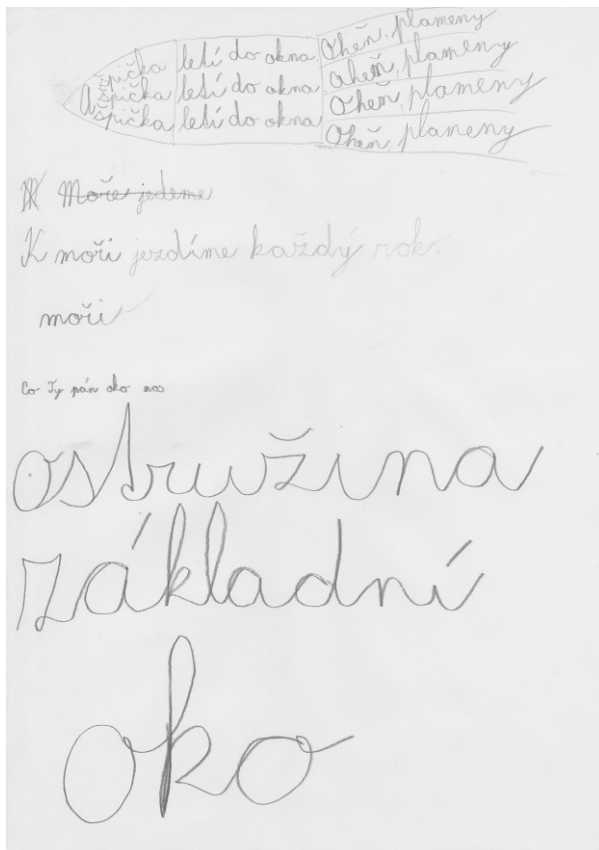 špička letí do okna. Oheň, plameny
Ašpička letí do okna Oheň, plameny
špička letí do okna Oheň, plameny
Oheň, plameny
Moře jedeme
K moři jezdíme každý rok.
moři
Co Ty pán oko noo
ostružina
základní
oko